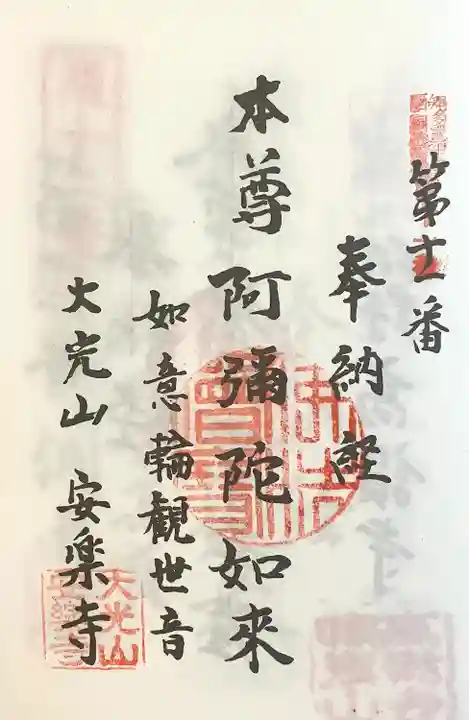 第十一番
奉納経
本尊阿彌陀如來
如意輪観世音
天光山 安楽寺
佛法
僧寶
天光山